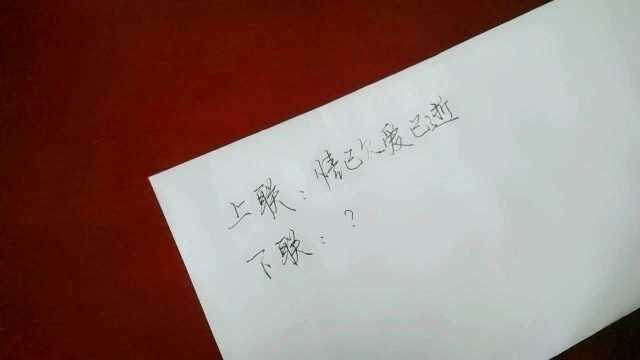 上联：情已欠爱已逝
下联：？